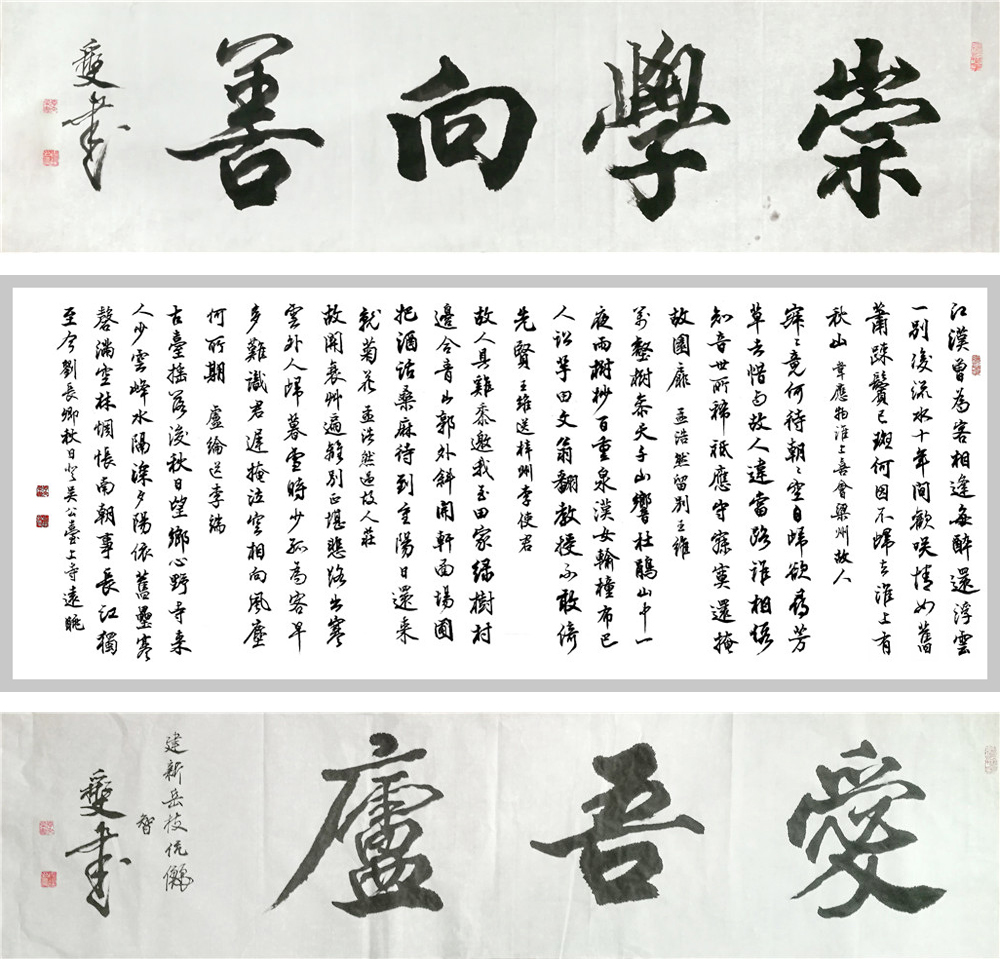 崇學向善
書
江漢曾為客相逢每醉還浮雲
一別後流水十年間歡咲情如舊
蕭疎鬢已斑何因不歸去淮上有
秋山 韋應物淮上喜會梁州故人
寂〻竟何待朝〻空自歸欲尋芳
草去惜与故人違當路誰相假
知音世所稀祗應守寂寞還掩
故園扉 孟浩然留別王維
萬壑樹參天千山響杜鵑山中一
夜雨樹杪百重泉漢女輸橦布巴
人訟芋田文翁翻教授不敢倚
先賢 王維送梓州李使君
故人具雞黍邀我至田家綠樹村
邊合青山郭外斜開軒面場圃
把酒話桑麻待到重陽日還來
就菊花 孟浩然過故人莊
故關衰艸遍離別正堪悲路出寒
雲外人歸暮雪時少孤為客早
多難識君遲掩泣空相向風塵
何所期 盧綸送李端
古臺搖落後秋日望鄉心野寺來
人少雲峰水隔深夕陽依舊壘寒
磬滿空林惆悵南朝事長江獨
至今 劉長卿秋日登吳公臺上寺遠眺
愛吾廬
建新岳枝伉儷
智
書